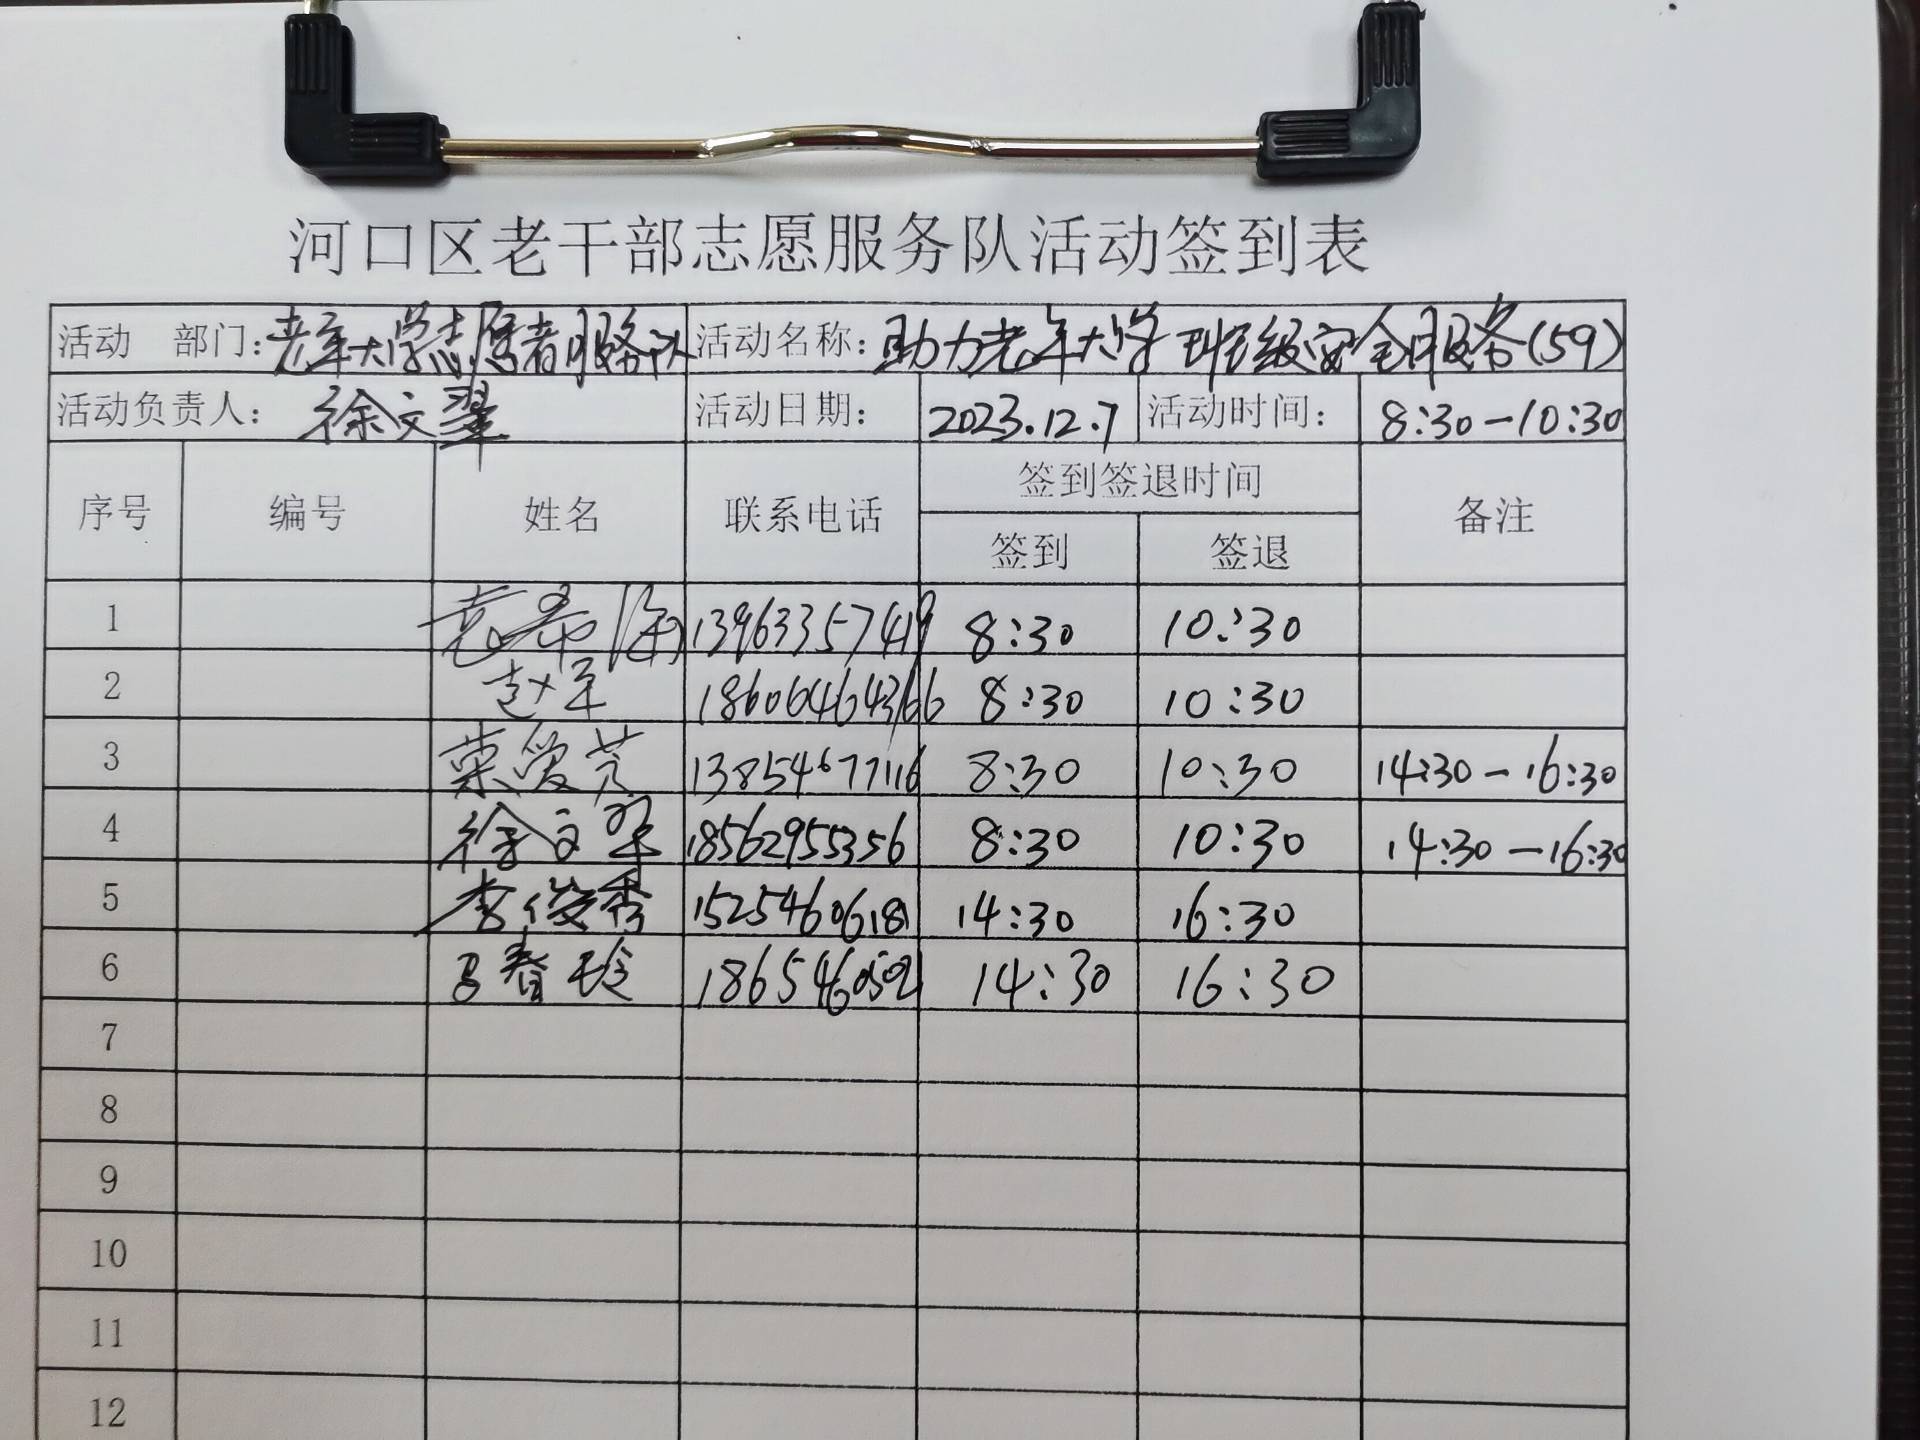 河口区老干部志愿服务队活动签到表
活动 部门：老年大学志愿者服务队 活动名称：助力老年大学班级安全服务(59)
活动负责人：徐文翠 活动日期：2023.12.7 活动时间：8:30-10:30
序号 编号 姓名 联系电话 签到签退时间 备注
签到 签退
1 13963357419 8:30 10:30
2 赵军 18606464366 8:30 10:30
3 荣爱芹 13854677116 8:30 10:30 14:30-16:30
4 徐文翠 18562955356 8:30 10:30 14:30-16:30
5 李俊秀 15254606181 14:30 16:30
6 马春玲 14:30 16:30
7
8
9
10
11
12